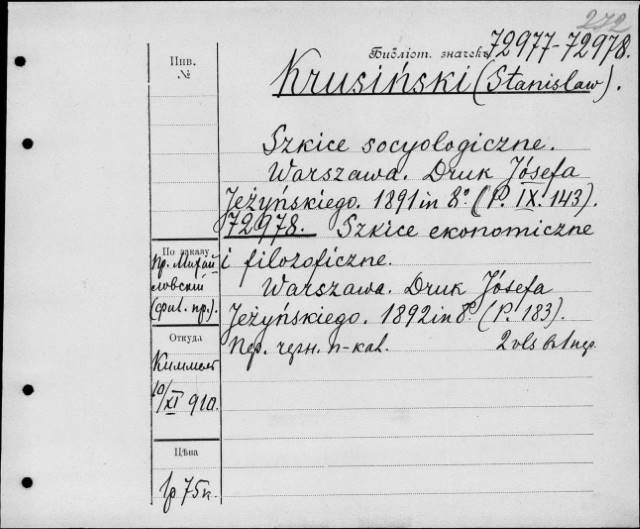 272
Инв.
№
Библіот. значекъ 72977-72978.
Krusiński (Stanisław).
Szkice socyologiczne.
Warszawa. Druk Józefa
Jeżyńskiego. 1891 in 8° (P. IX. 143).
72978. Szkice ekonomiczne
i filozoficzne.
Warszawa. Druk Józefa
Jeżyńskiego. 1892 in 8° (P. 183).
Пер. черн. п-кал.
2 vls в 1 пер.
По заказу
пр. Михай
ловский
(фил. пр.).
Откуда
Киммель
10/XI 910.
Цѣна
1р 75к.